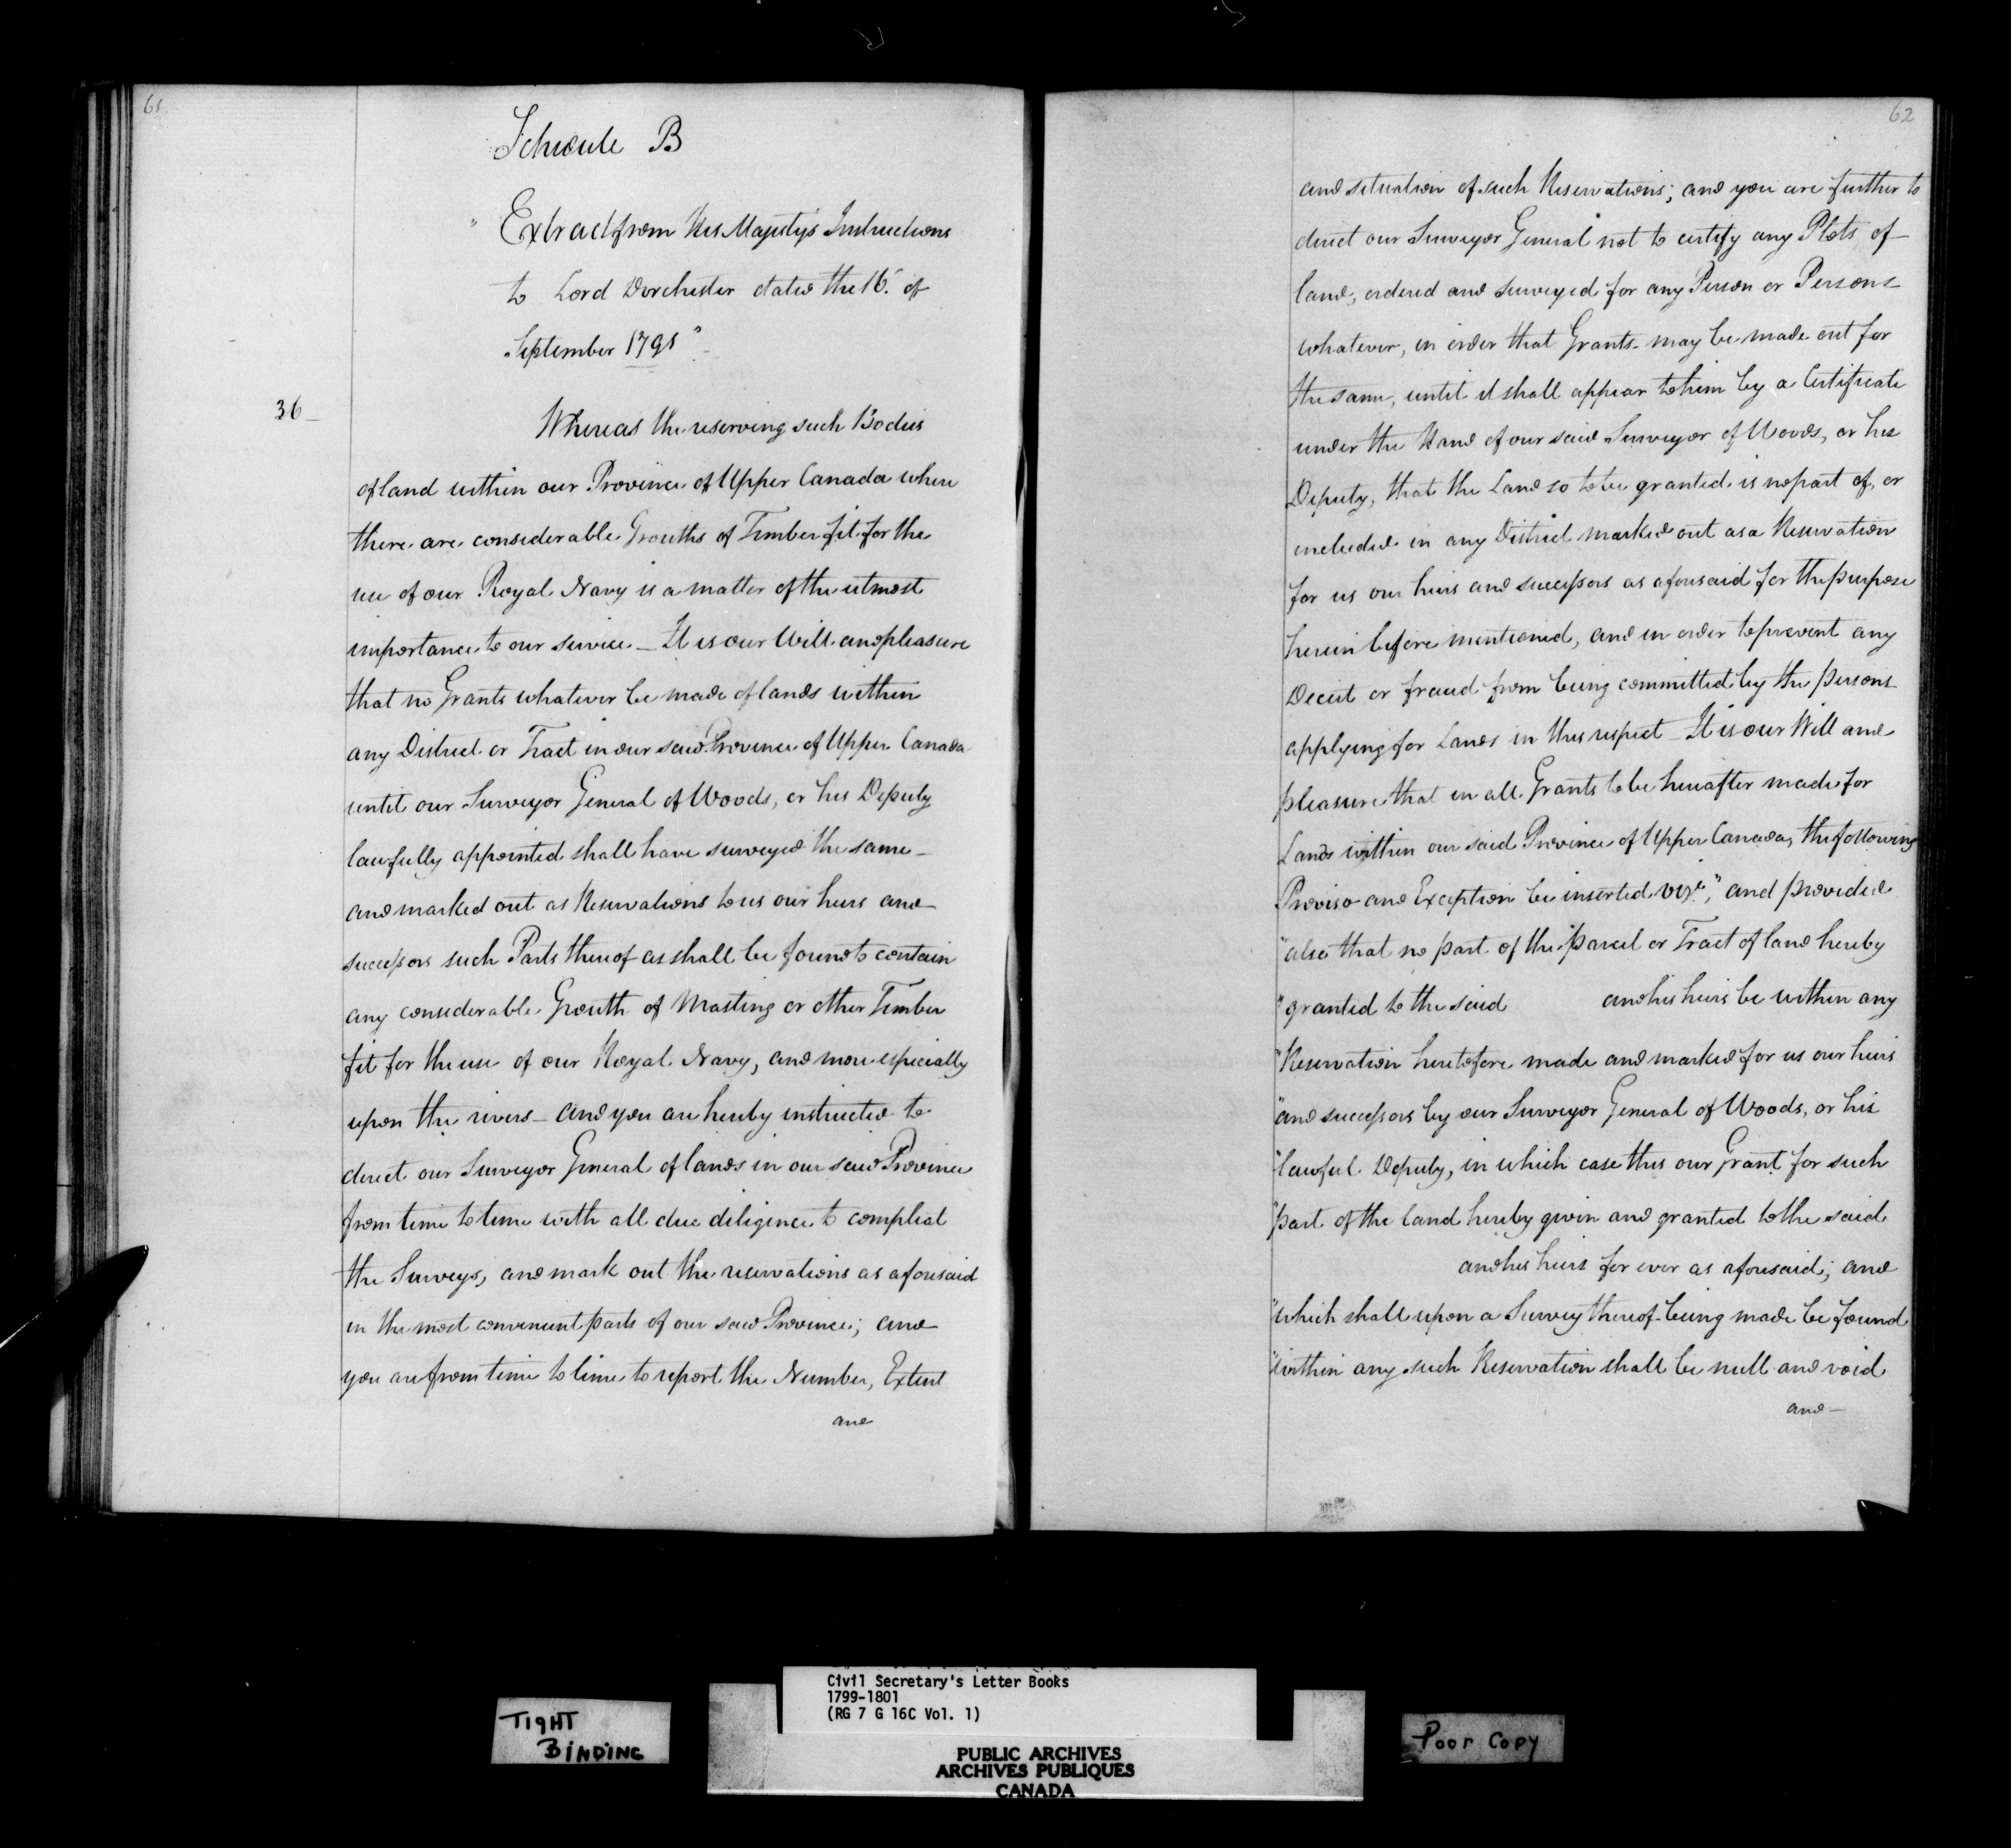 61
Schedule B
"Extract from His Majesty's Instructions
to Lord Dorchester dated the 16. of
September 1791"
36
Whereas the reserving such Bodies
of land within our Province of Upper Canada where
there are considerable Grouths of Timber fit for the
use of our Royal Navy is a matter of the utmost
importance to our service_ It is our Will and pleasure
that no Grants whatever be made of lands within
any District or Tract in our said Province of Upper Canada
until our Surveyor General of Woods, or his Deputy
lawfully appointed shall have surveyed the same_
and marked out as Reservations to us our heirs and
successors such Parts thereof as shall be found to contain
any considerable Grouth of Masting or other Timber
fit for the use of our Royal Navy, and more especially
upon the rivers_ and you are hereby instructed to
direct our Surveyor General of lands in our said Province
from time to time with all due diligence to compleat
the Surveys, and mark out the reservations as aforesaid
in the most convenient parts of our said Province; and
you are from time to time to report the Number, Extent
and
62
and situation of such Reservations; and you are further to
direct our Surveyor General not to certify any Plots of
land, ordered and surveyed for any Person or Persons
whatever, in order that Grants may be made out for
the same, until it shall appear to him by a Certificate
under the Hand of our said Surveyor of Woods, or his
Deputy, that the Land so to be granted is no part of, or
included in any District marked out as a Reservation
for us our heirs and successors as aforesaid for the purpose
herein before mentioned, and in order to prevent any
Deceit or fraud from being committed by the persons
applying for Lands in this respect_ It is our Will and
pleasure that in all Grants to be hereafter made for
Lands within our said Province of Upper Canada, the following
Proviso and Exception be inserted vizt. "and provided
"also that no part of the parcel or Tract of land hereby
"granted to the said and his heirs be within any
"Reservation heretofore made and marked for us our heirs
"and successors by our Surveyor General of Woods, or his
"lawful Deputy, in which case this our Grant for such
"part of the land hereby given and granted to the said
and his heirs for ever as aforesaid; and
"which shall upon a Survey thereof being made be found
"within any such Reservation shall be null and void
and_
TIGHT
BINDING
Civil Secretary's Letter Books
1799-1801
(RG 7 G 16C Vol. 1)
PUBLIC ARCHIVES
ARCHIVES PUBLIQUES
CANADA
Poor Copy